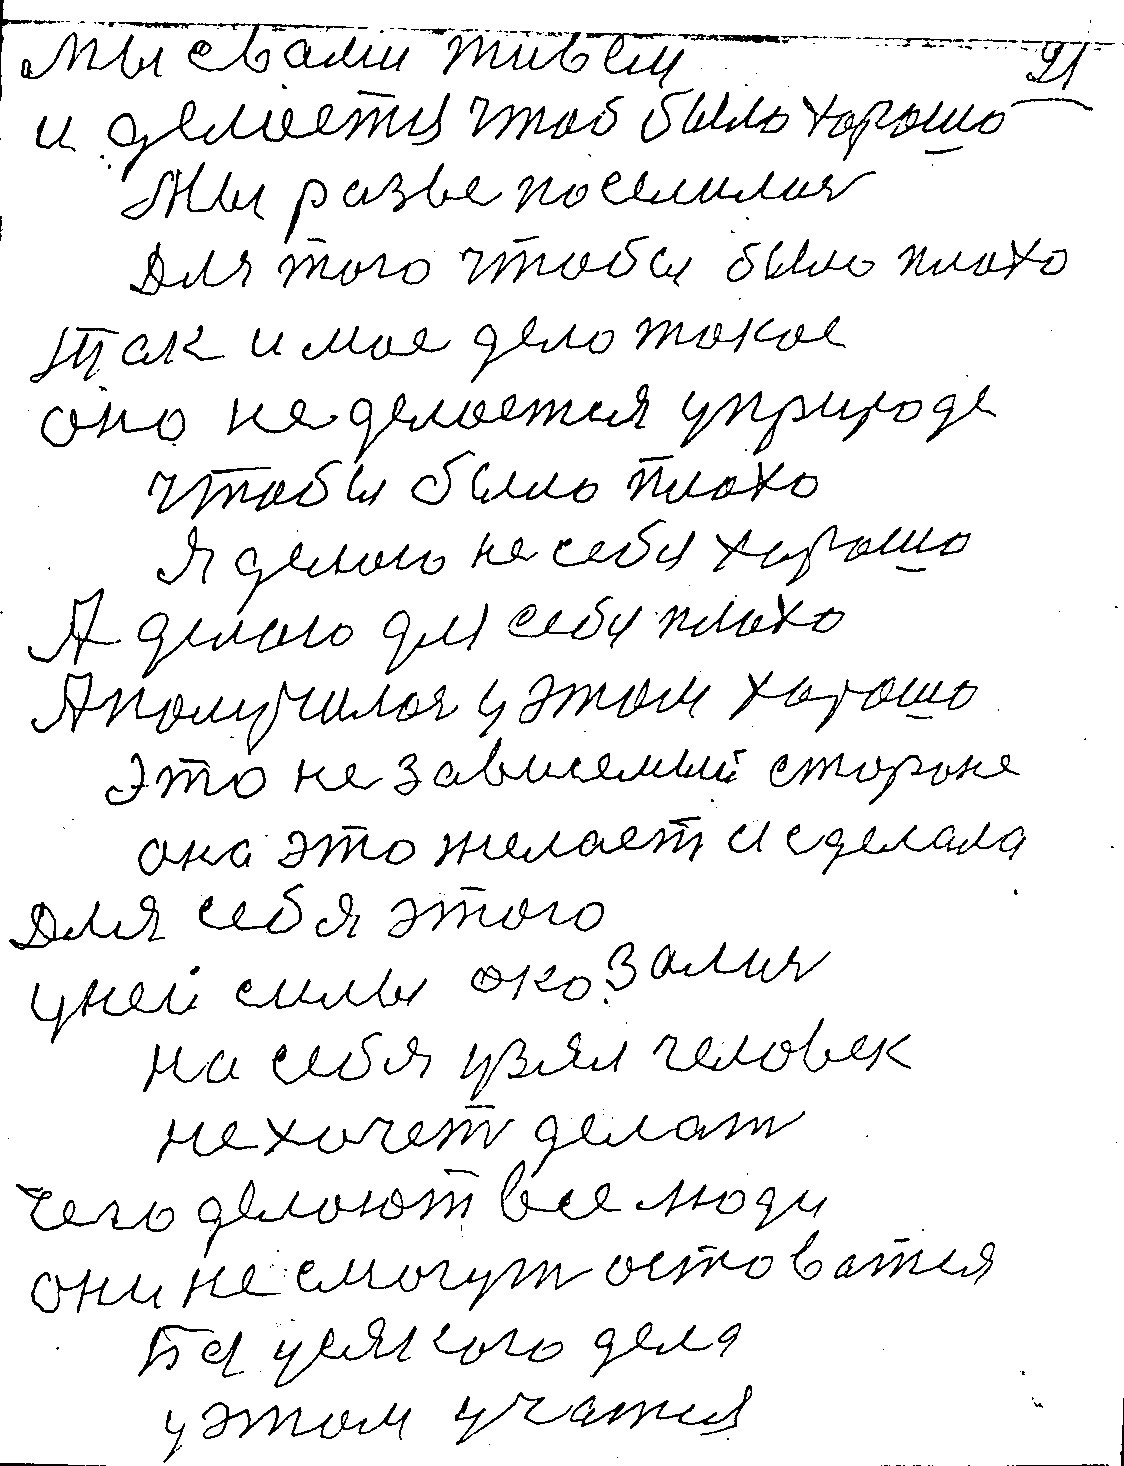 мы свами живем
21
и делается чтоб было хорошо
Мы разве поселился
Для того чтобы было плохо
Так и мое дело такое
оно не делается уприроде
чтобы было плохо
Я делаю не себя хорошо
А делаю для себя плохо
А получился у этом хорошо
это не зависемый стороне
она это желает и сделала
Для себя этого
уней силы оказался
на себя узял человек
не хочет делат
чего делают все люди
они не смогут остоватся
Без усякого дела
у этом учатся